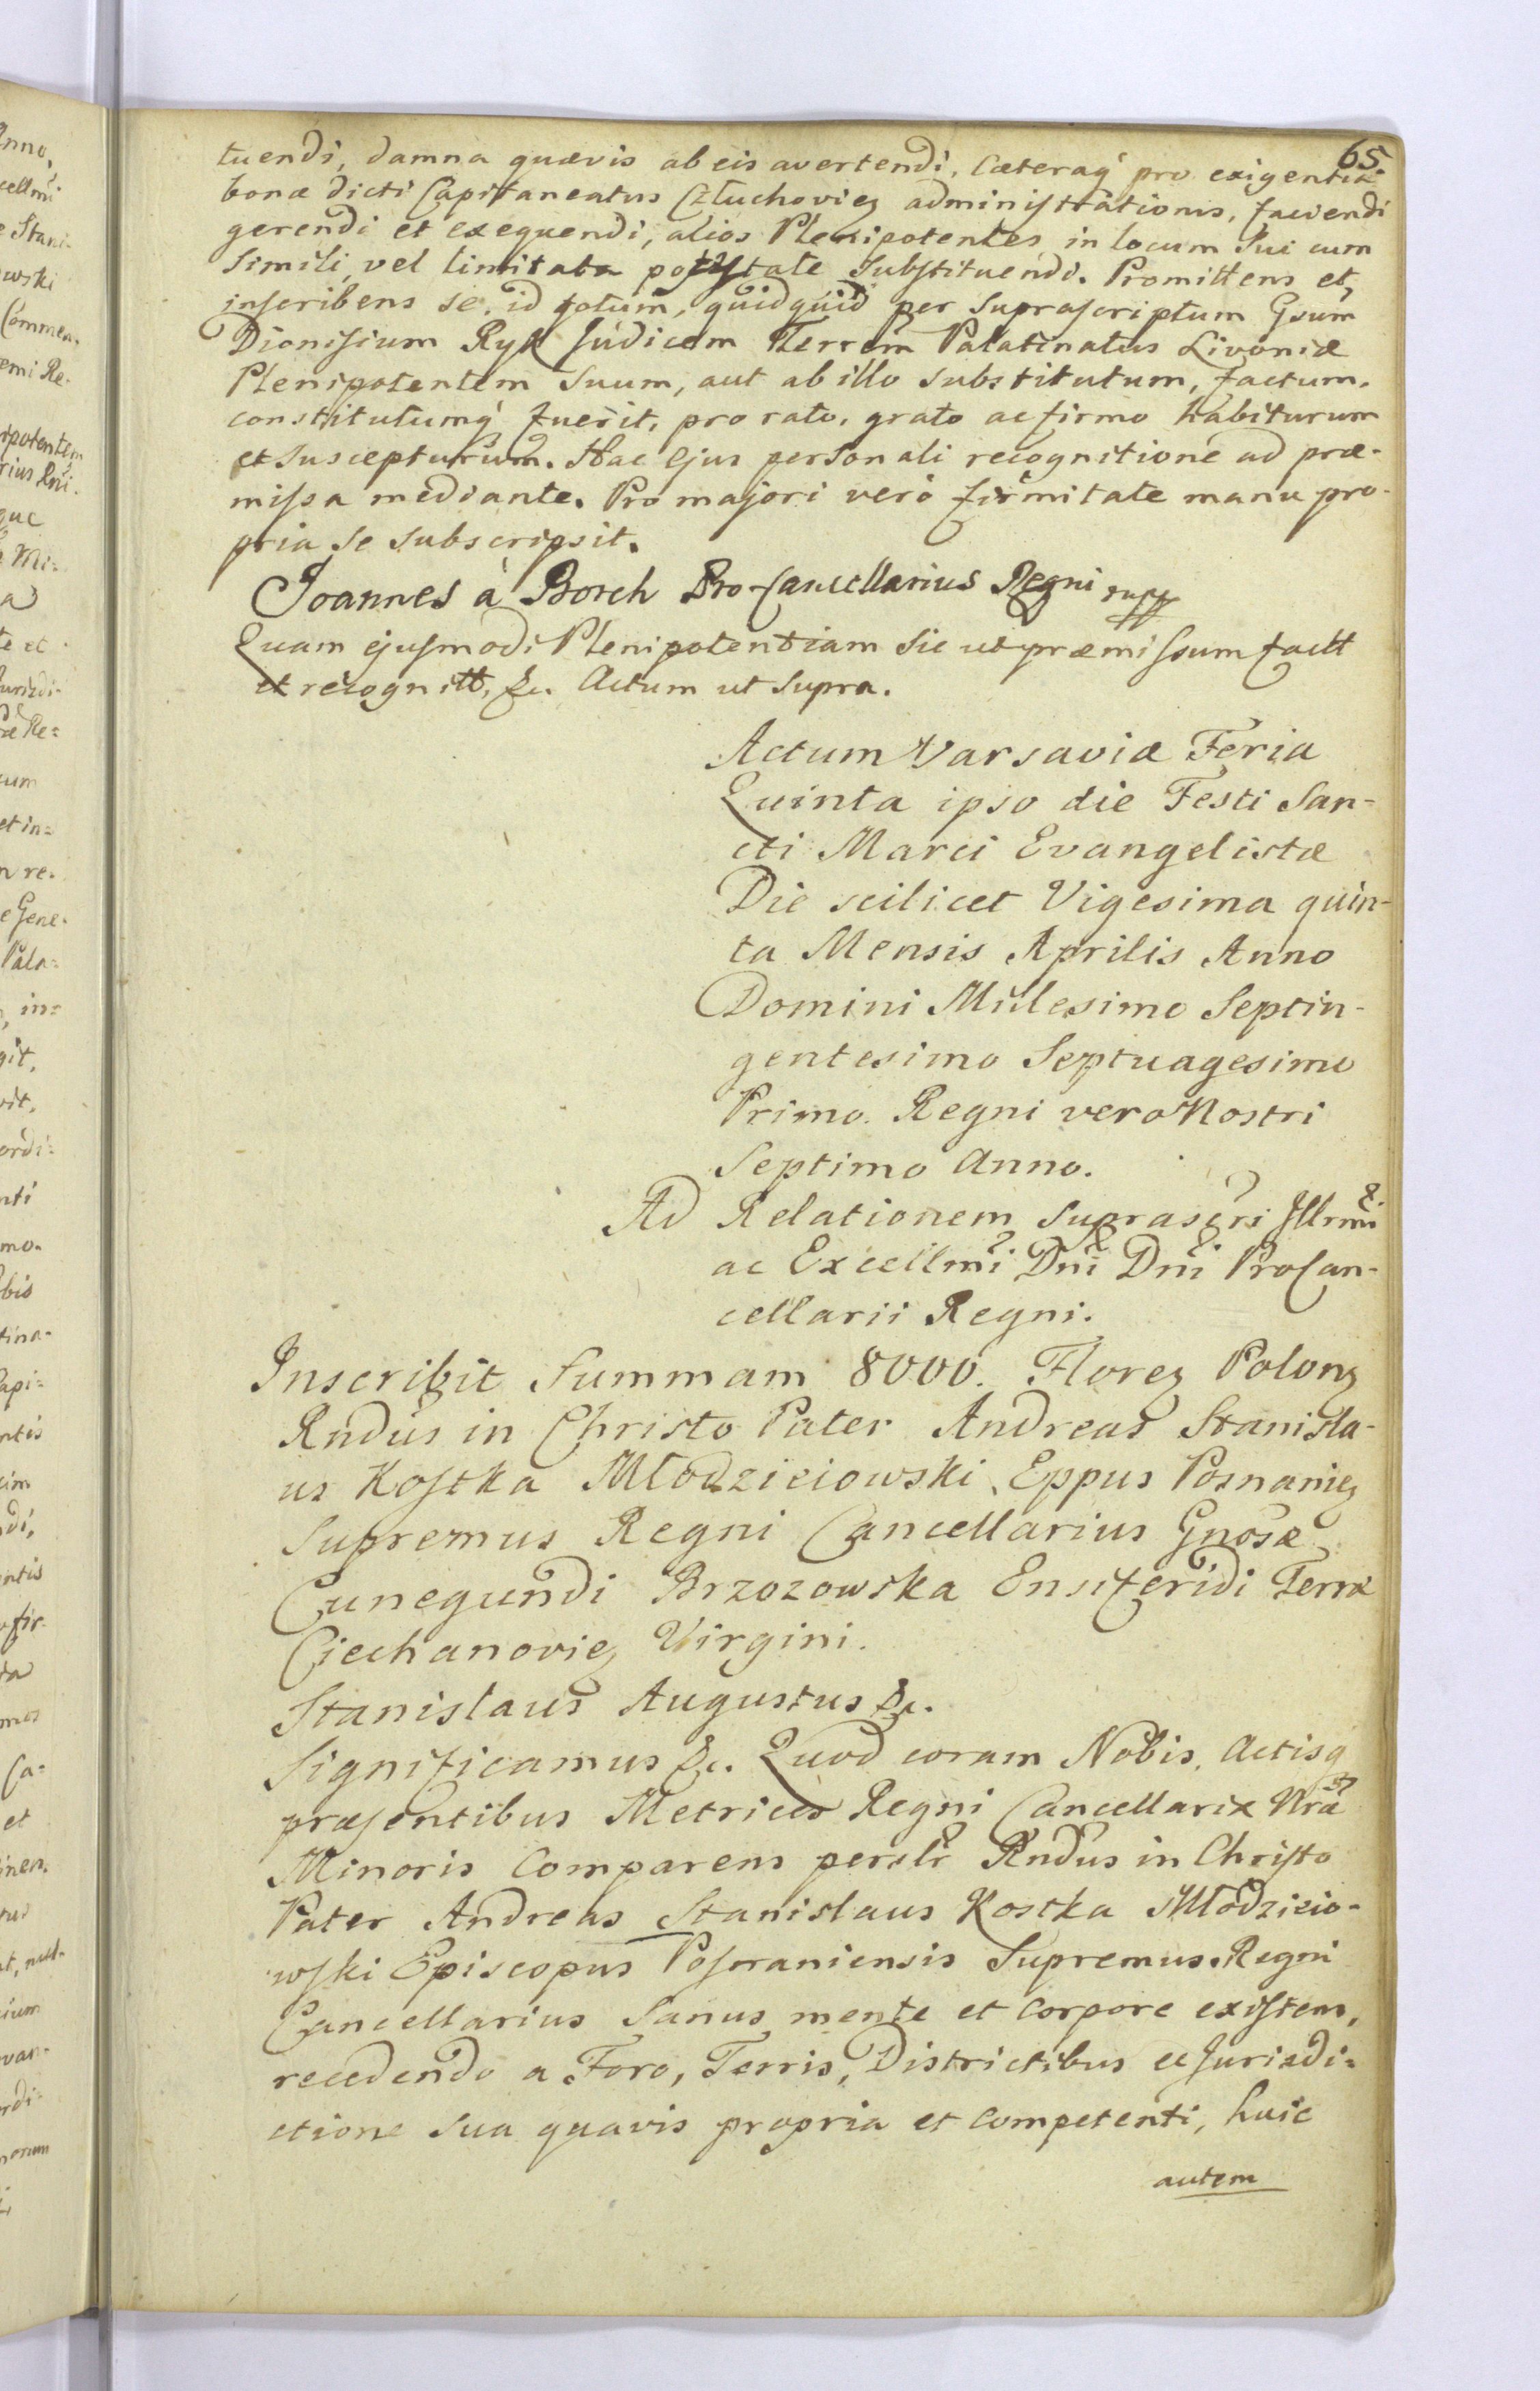 65
tuendi, damna quævis ab eis avertendi, Cæteraq́ pro exigentia
bonæ dicti Capitaneatus Człuchovieȝ administrationis, faciendi
gerendi et exequendi, alios Plenipotentes in locum Sui cum
Simili, vel limitata potestate Substituendi. Promittens et,
inscribens se, id totum, quidquid per Suprascriptum Gsum
Dionisium Ryk Judicem Terrem̃ Palatinatus Livoniæ
Plenipotentem Suum, aut ab illo substitutum, factum,
constitutumq́ fuerit, pro rato, grato ac firmo habiturum
et Suscepturum. Hac Ejus personali recognitione ad præ-
missa mediante. Pro majori verò firmitate manu pro-
pria se subscripsit.
Joannes à Borch Pro-Cancellarius Regni mpp
Quam ejusmodi Plenipotentiam Sic ut præmissum factt
et recognitt, &c. Actum ut Supra.
Actum Varsaviæ Feria
Quinta ipso die Festi San-
cti Marci Evangelistæ
Die scilicet Vigesima quin-
ta Mensis Aprilis Anno
Domini Milesimo Septin-
gentesimo Septuagesimo
Primo. Regni vero Nostri
Septimo Anno.
Ad Relationem Suprascri Jllrmi
ac Excellmi Dni Dni ProCan-
cellarii Regni.
Inscribit Summam 8000. Floreȝ Polonȝ
Rndus in Christo Pater Andreas Stanisla-
us Kostka Młodzieiowski, Eppus Posnanieȝ
Supremus Regni Cancellarius Gnosæ
Cunegundi Brzozowska Ensiferidi Terræ
Ciechanovieȝ Virgini.
Stanislaus Augustus &c.
Significamus &c. Quod coram Nobis, Actisq́
præsentibus Metrices Regni Cancellariæ Nræ
Minoris Comparens persłr Rndus in Christo
Pater Andreas Stanislaus Kostka Młodzieio-
wski Episcopus Posnaniensis Supremus Regni
Cancellarius Sanus mente et Corpore existens,
recedendo a Foro, Terris, Districtibus et Jurisdi-
ctione Sua quavis propria et Competenti, huic
autem